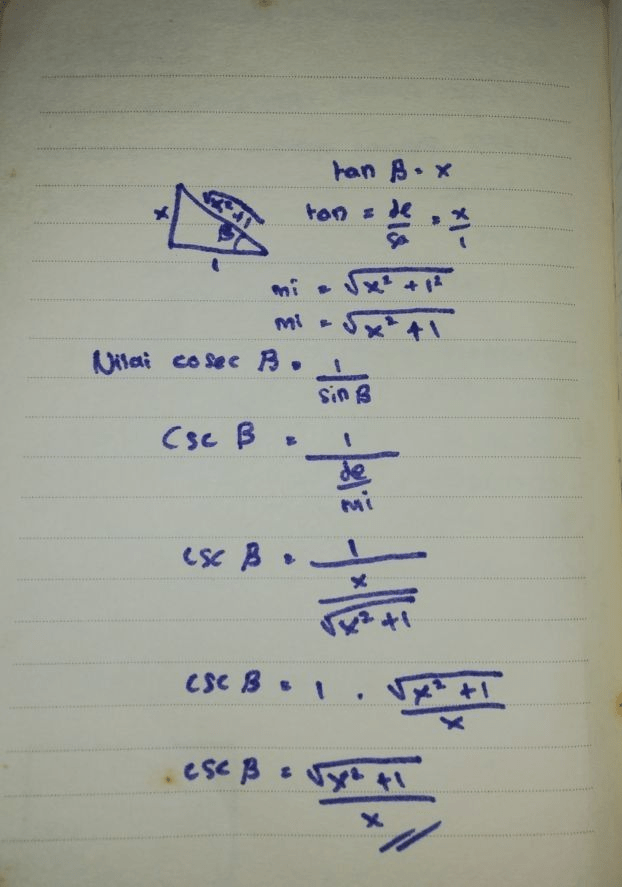 tan β = x
x √x²+1 β 1
tan = de/sa = x/1
mi = √x² + 1²
mi = √x² + 1
Nilai cosec β = 1/sin β
Csc β = 1/(de/mi)
csc β = 1/(x/√x² +1)
csc β = 1 . √x² +1/x
csc β = √x² +1/x